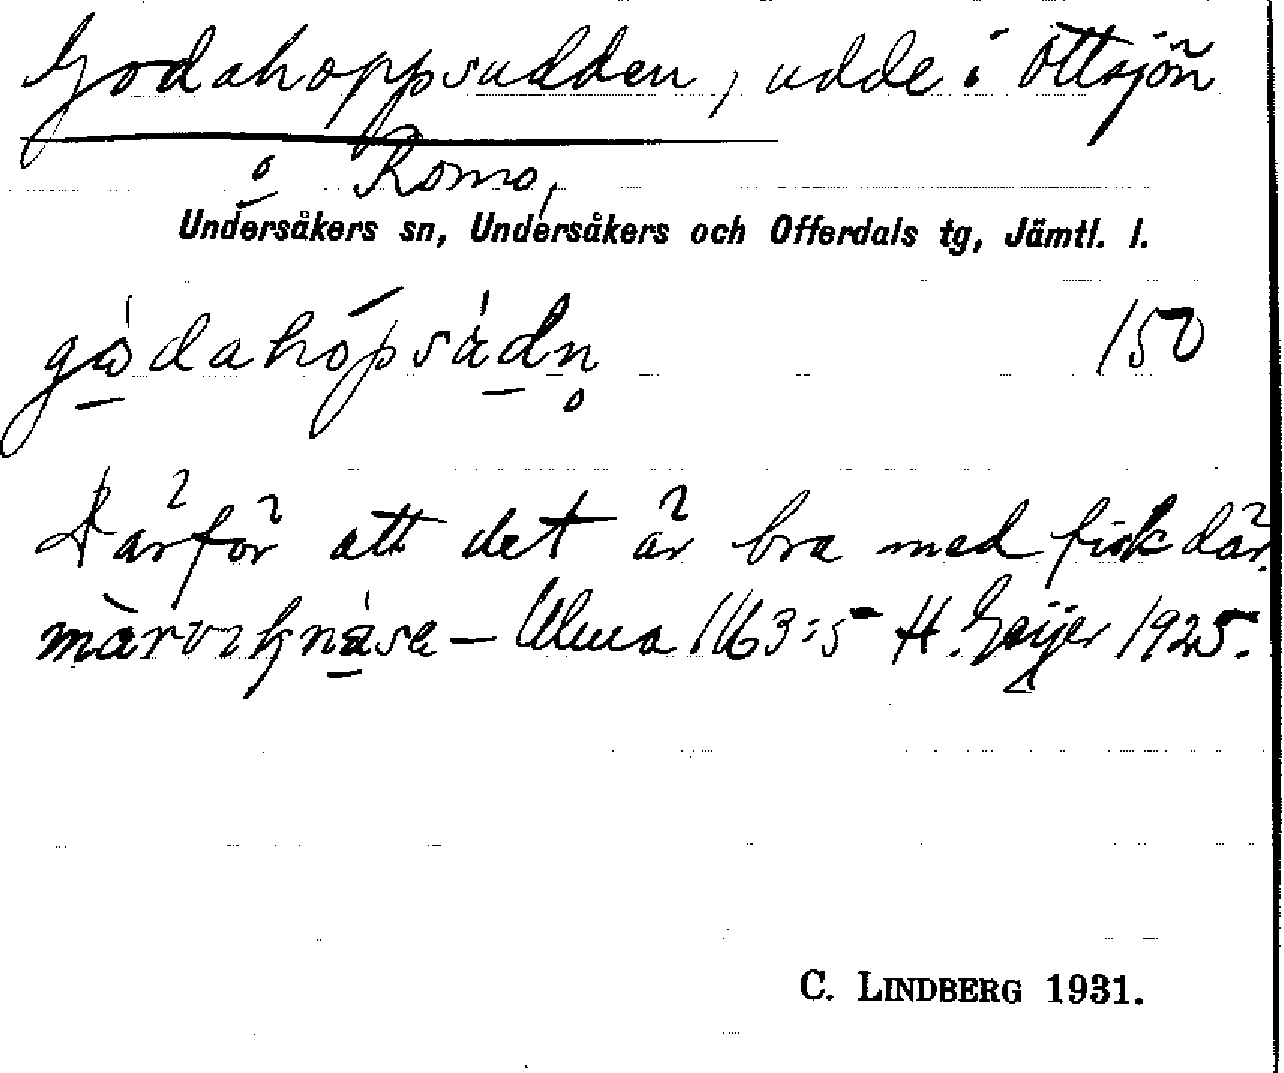 Godahoppsudden, udde i Ottsjön
o Romo,
Undersåkers sn, Undersåkers och Offerdals tg, Jämtl. l.
150
Därför att det är bra med fisk där.
Ulma 1163:5 H. Geijer 1925.
C. LINDBERG 1931.